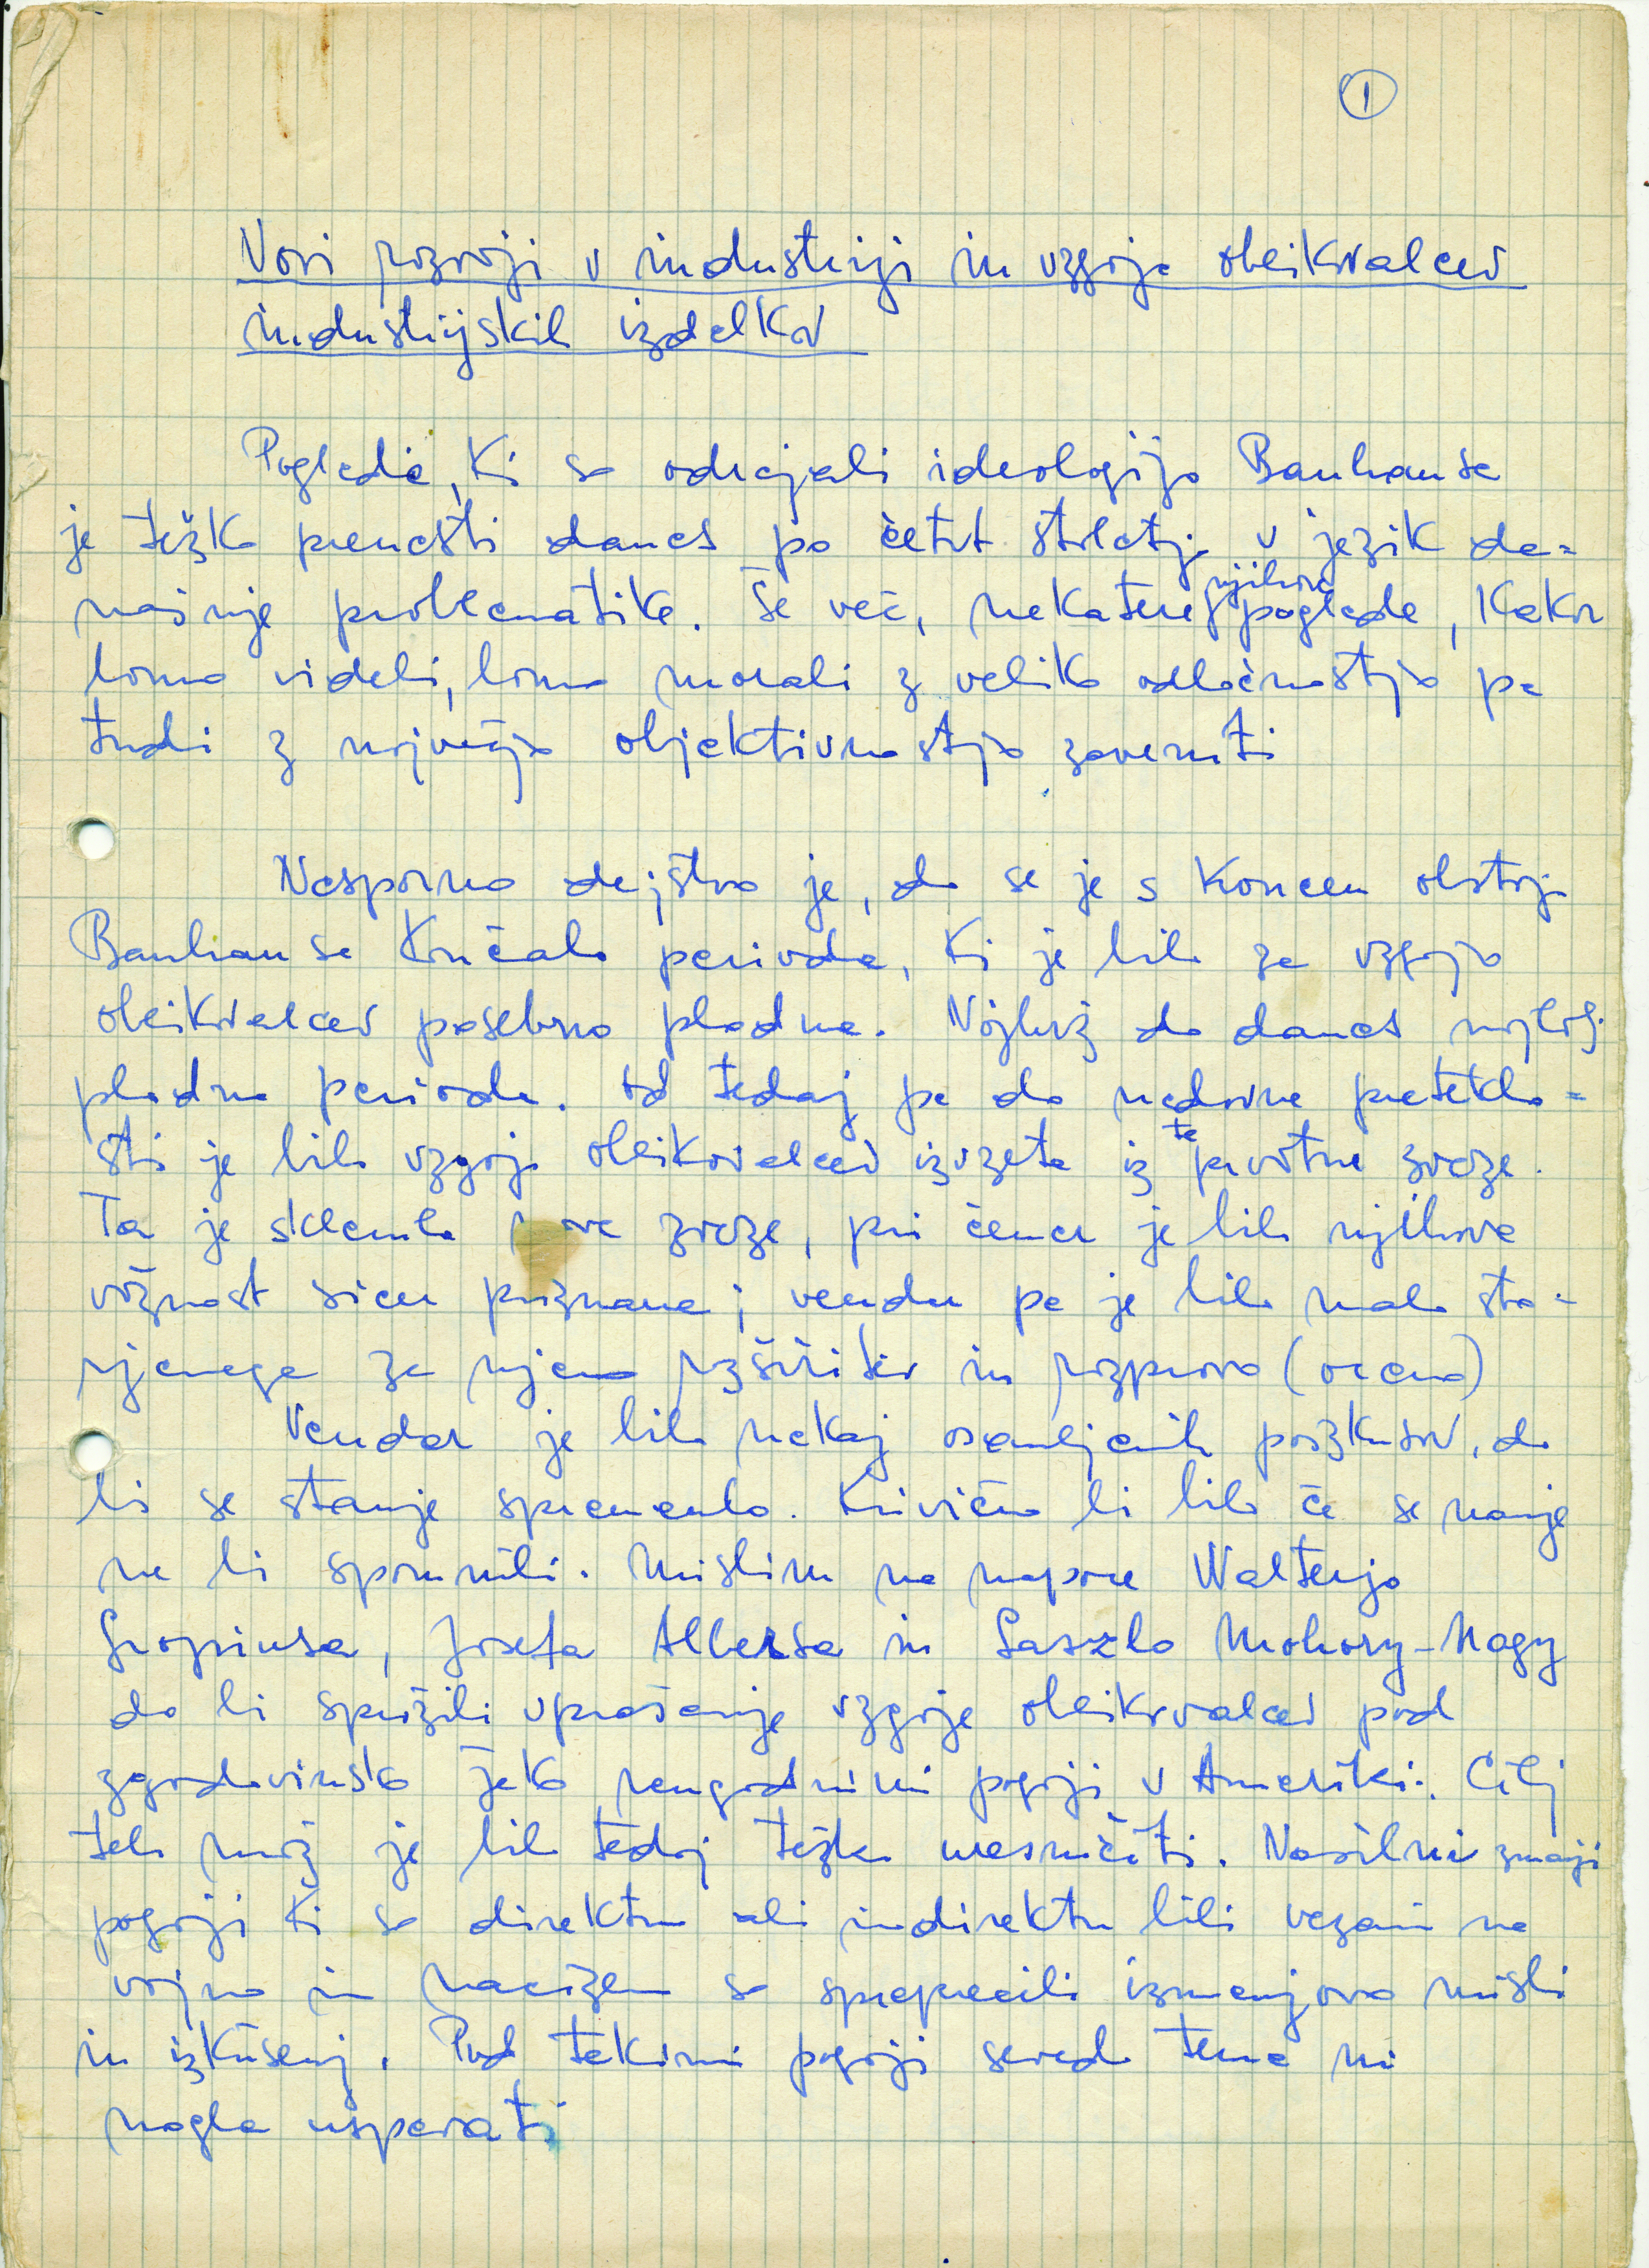 1
Novi razvoji v industriji in vzgoja oblikovalcev
industrijskih izdelkov
Poglede, ki so odrejali ideologijo Bauhausa
je težko prenesti danes po četrt stoletja v jezik da=
našnje problematike. Še več, nekatere njihove poglede, kakor
bomo videli, bomo morali z veliko odločnostjo pa
tudi z največjo objektivnostjo zavrniti
Nesporno dejstvo je, da se je s koncem obstoja
Bauhausa končala perioda, ki je bila za vzgojo
oblikovalcev posebno plodna. Najbrž do danes najbolj
plodna perioda. Od tedaj pa do nedavne preteklo=
sti je bila vzgoja oblikovalcev izvzeta iz te prvotne zveze.
Ta je sklenila nove zveze, pri čemer je bila njihova
važnost sicer priznana; vendar pa je bilo malo sto=
rjenega za njeno razširitev in razpravo (oceno)
Vendar je bilo nekaj osamljenih poizkusov, da
bi se stanje spremenilo. Krivično bi bilo če se nanje
ne bi spomnili. Mislim na napore Walterja
Gropiusa, Josefa Albersa in Laszlo Moholy-Nagy
da bi sprožili vprašanje vzgoje oblikovalcev pod
zgodovinsko jako neugodnimi pogoji v Ameriki. Cilj
teh mož je bilo tedaj težko uresničiti. Nasilni zunanji
pogoji ki so direktno ali indirektno bili vezani na
vojno in nacizem so preprečili izmenjavo misli
in izkušenj. Pod takimi pogoji seveda tema ni
mogla uspevati